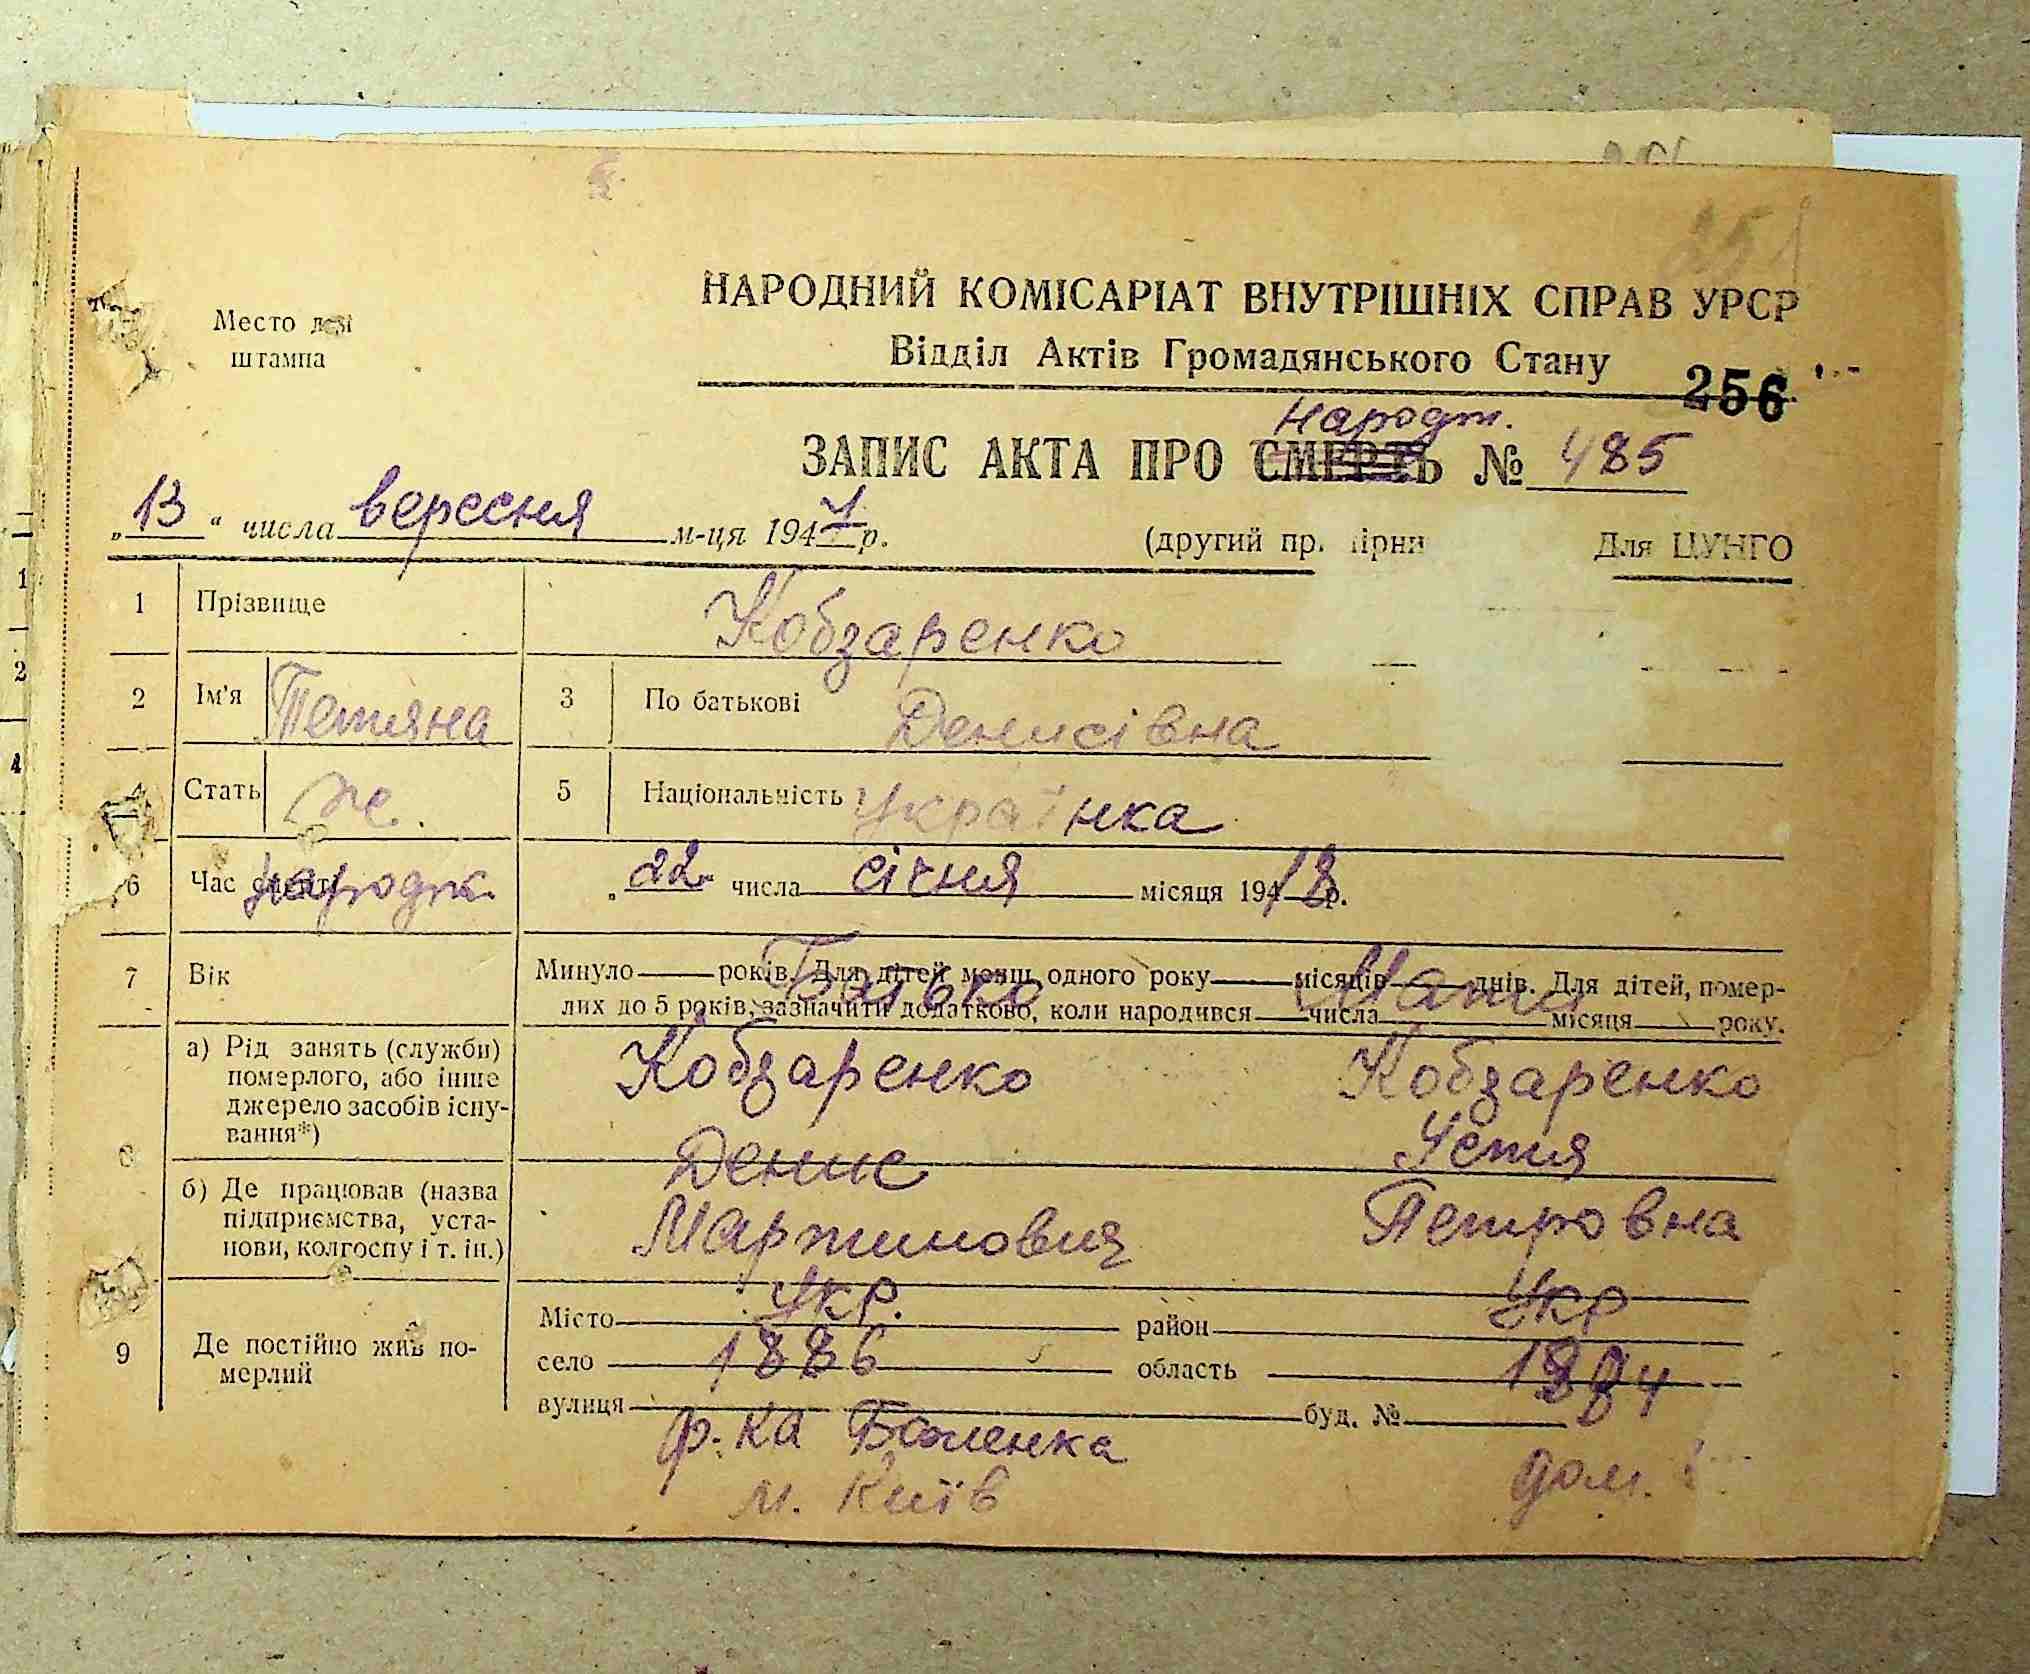 251
НАРОДНИЙ КОМІСАРІАТ ВНУТРІШНІХ СПРАВ УРСР
Место для
штампа
Відділ Актів Громадянського Стану
256
народж.
ЗАПИС АКТА ПРО СМЕРТЬ № 485
„13“ числа вересня м-ця 194 р.
(другий Для ЦУНГО
1 Прізвище Кобзаренко
2 Ім'я Тетяна 3 По батькові Денисівна
4 Стать ж. 5 Національність українка
6 Час смерті народж. „22 числа січня місяця 1918 р.
7 Вік Минуло років. Для дітей менш одного року місяців днів. Для дітей, помер-
лих до 5 років, зазначити додатково, коли народився числа місяця року.
Батько Мати
а) Рід занять (служби)
померлого, або інше
джерело засобів існу-
вання*)
Кобзаренко Кобзаренко
Денис Устя
8
б) Де працював (назва
підприємства, уста-
нови, колгоспу і т. ін.)
Мартинович Петровна
укр. укр
9 Де постійно жив по-
мерлий
Місто район
село 1886 область
вулиця буд. №
ф-ка Боженка
м. Київ
дом.